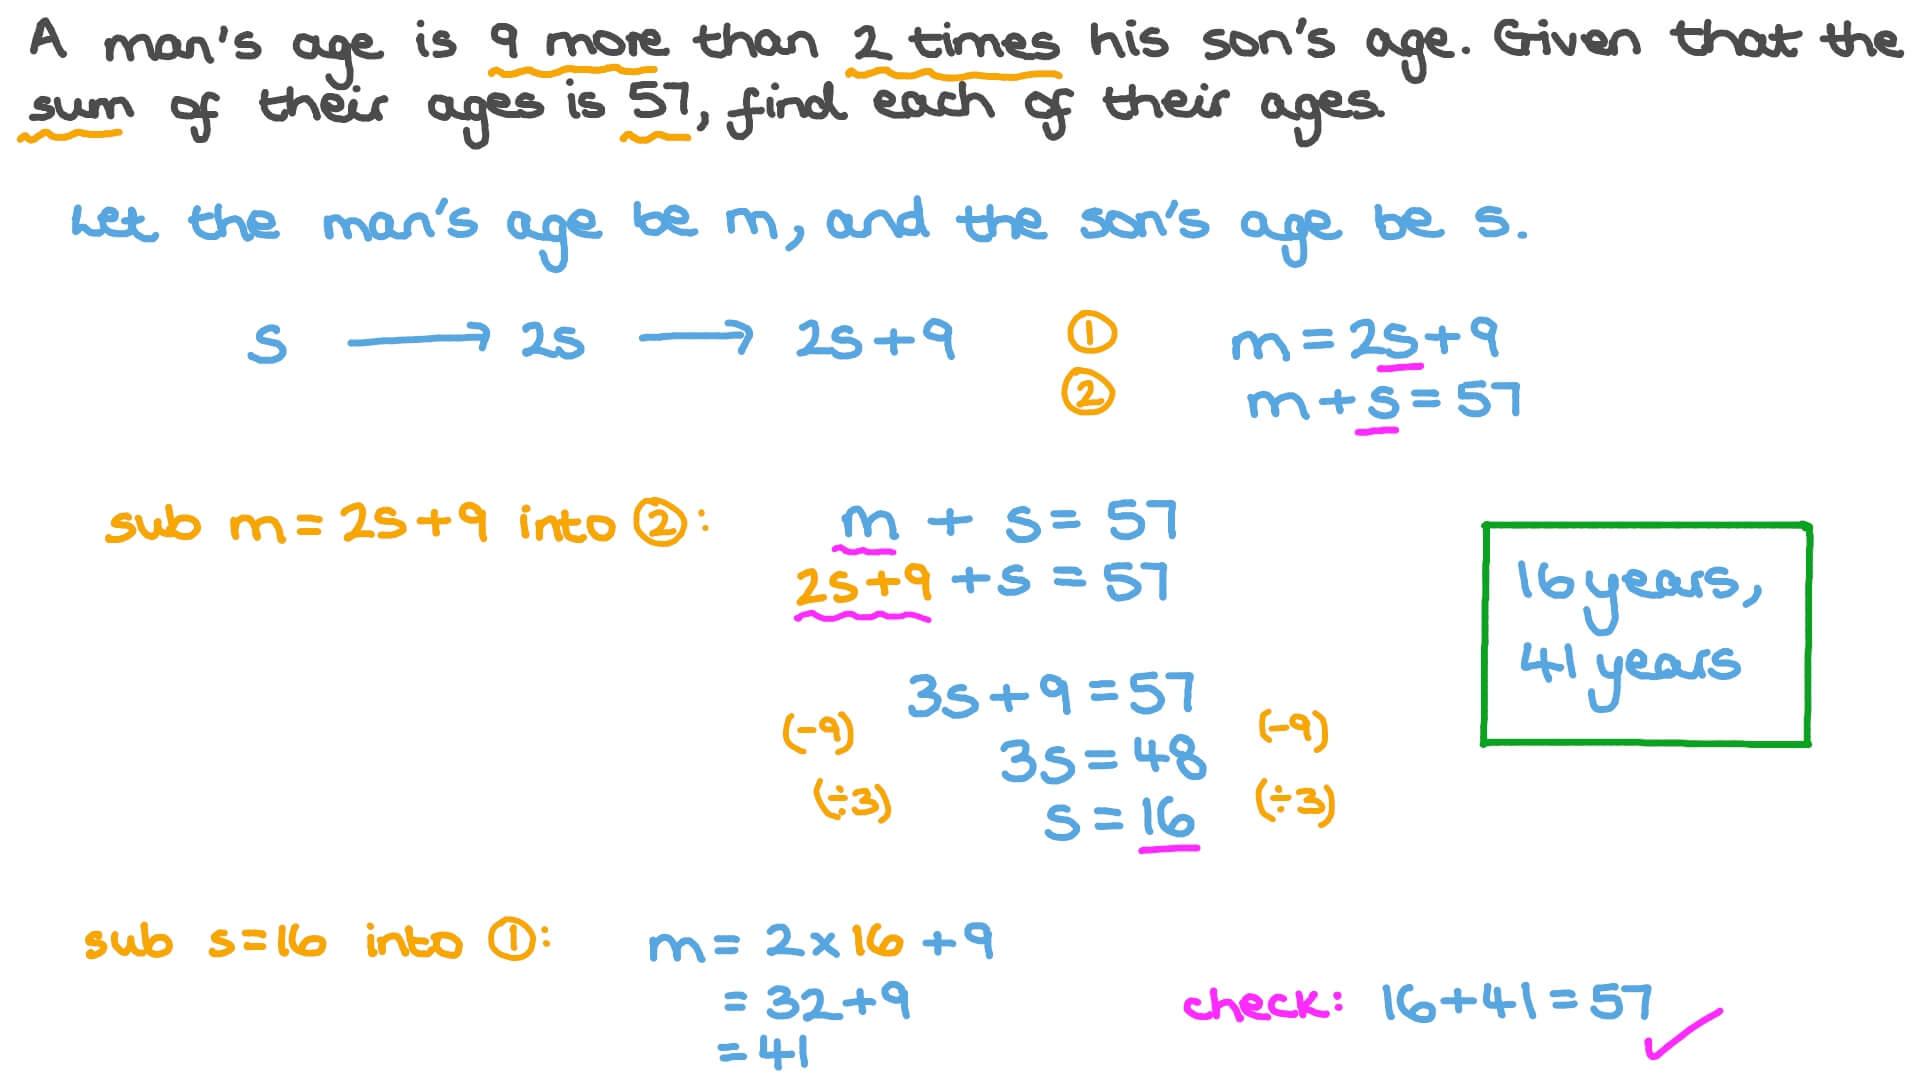 A man's age is 9 more than 2 times his son's age. Given that the
sum of their ages is 57, find each of their ages.
Let the man's age be m, and the son's age be s.
s ⟶ 2s ⟶ 2s+9 ① m=2s+9
② m+s=57
sub m=2s+9 into ②: m + s = 57
2s+9 +s = 57
3s+9=57
(-9) 3s=48 (-9)
(÷3) s=16 (÷3)
16 years,
41 years
sub s=16 into ①: m= 2×16+9
= 32+9
= 41
check: 16+41=57 ✓